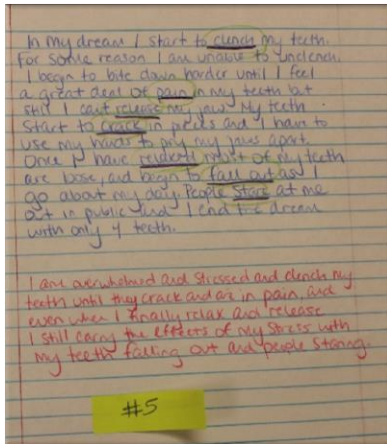 In my dream I start to clench my teeth.
For some reason I am unable to unclench.
I begin to bite down harder until I feel
a great deal of pain in my teeth but
still I can't release my jaw. My teeth
start to crack in pieces and I have to
use my hands to pry my jaws apart.
Once I have released most of my teeth
are loose, and begin to fall out as I
go about my day. People stare at me
out in public and I end the dream
with only 4 teeth.
I am overwhelmed and stressed and clench my
teeth until they crack and are in pain, and
even when I finally relax and release
I still carry the effects of my stress with
my teeth falling out and people staring.
#5